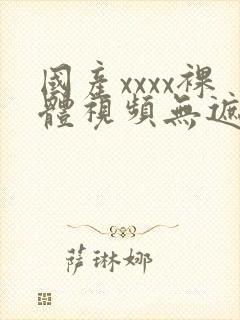 國産xxxx裸
體視頻無遮
萨琳娜